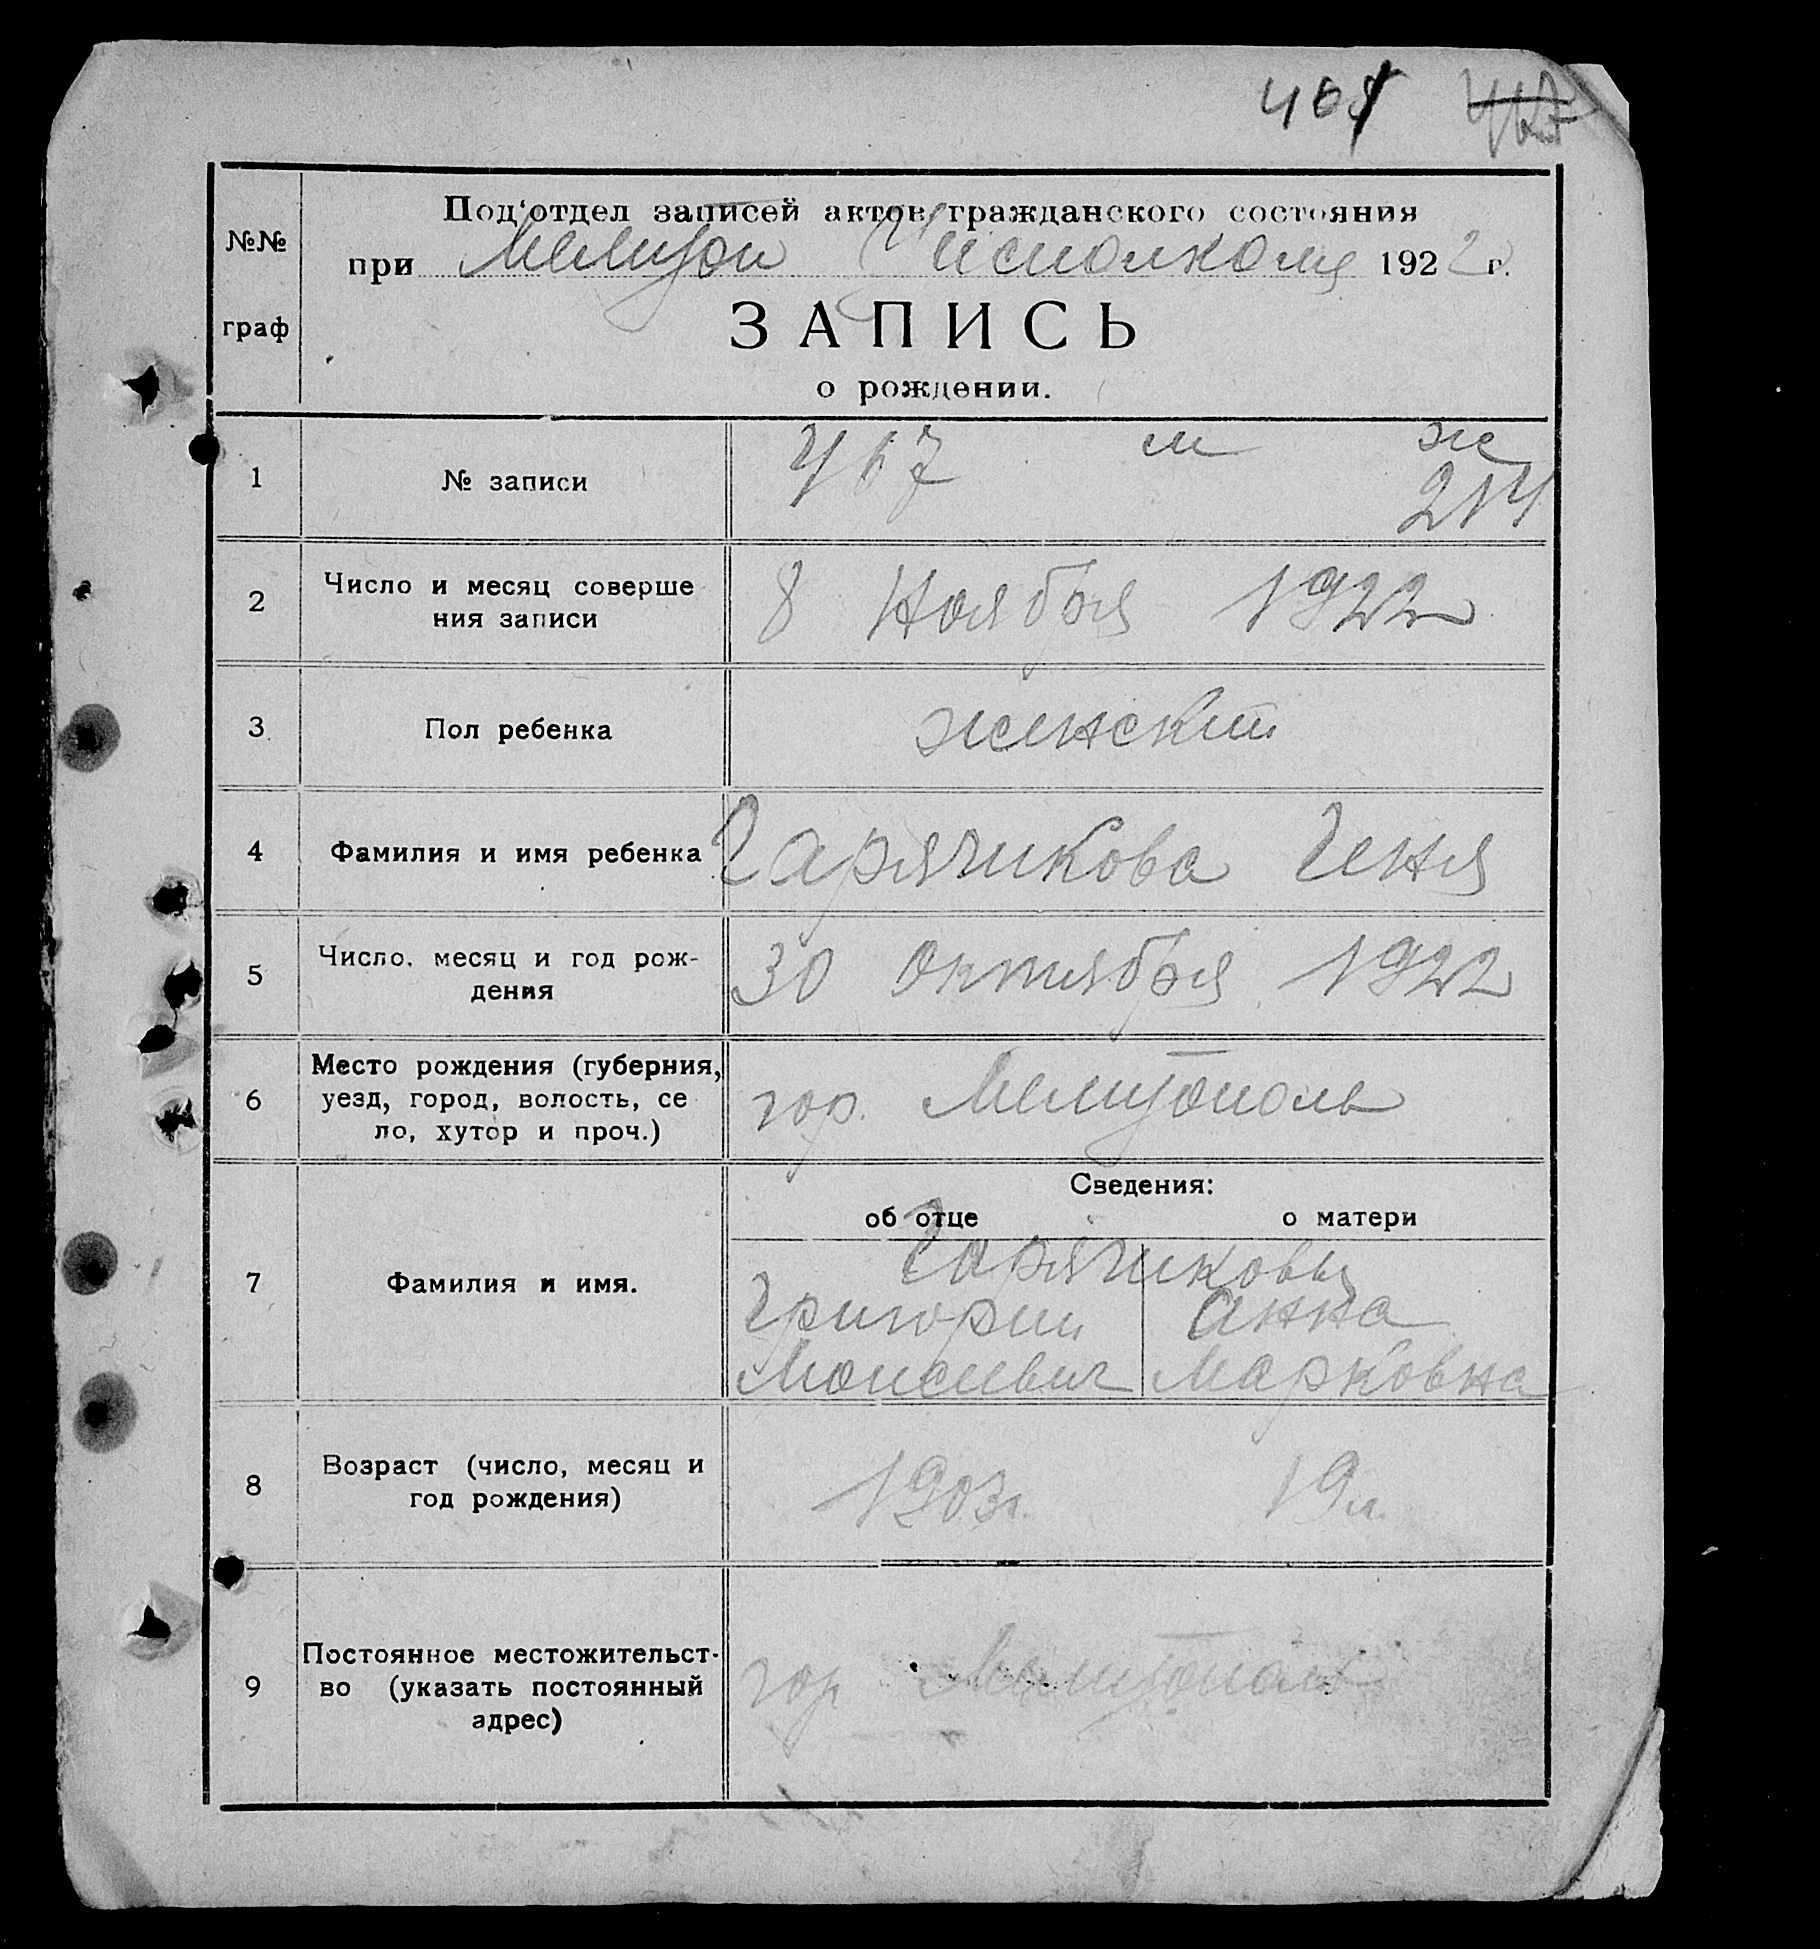 Под'отдел записей актов гражданского состояния
№№
при Мелитоп Уисполкоме 1922 г.
граф
ЗАПИСЬ
о рождении.
1 № записи 467 м ж
214
2 Число и месяц соверше 8 Ноября 1922
ния записи
3 Пол ребенка женский
4 Фамилия и имя ребенка Гарячикова Геня
5 Число, месяц и год рож- 30 Октября 1922
дения
Место рождения (губерния,
6 уезд, город, волость, се гор. Мелитополь
ло, хутор и проч.)
Сведения:
об отце о матери
Горячиковы
7 Фамилия и имя. Григорий Анна
Моисеевич Марковна
8 Возраст (число, месяц и 1903г. 19л.
год рождения)
Постоянное местожительст-
9 во (указать постоянный гор Мелитополь
адрес)